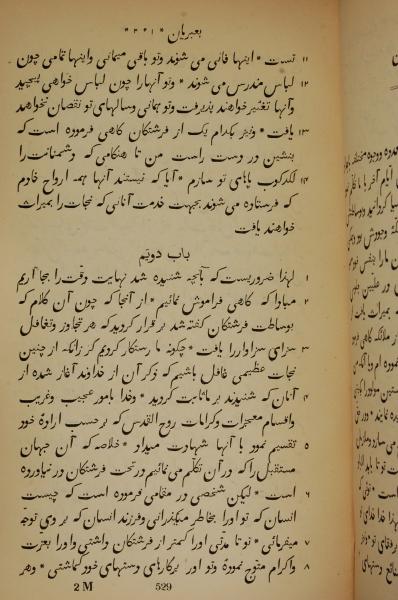 بعبریان * ۱ ۲ *
۱۱ تست * اینها فانی می شوند وتو باقی میمانی واینها تمامی چون
۱۲ لباس مندرس می شوند * وتو آنها را چون لباس خواهی پیچید
وآنها تغییر خواهند پذیرفت وتو همانی وسالهای تو نقصان نخواهد
۱۳ یافت * وبهر یکدام یک از فرشتگان کاهی فرموده است که
بنشین در دست راست من تا هنکامی که دشمنانت را
۱۴ لکدکوب پاهای تو سازم * آیا که نیستند آنها همه ارواح خادم
که فرستاده می شوند بجهت خدمت آنانی که نجات را بمیراث
خواهند یافت
باب دویم
۱ لهذا ضروریست که بآنچه شنیده شد نهایت وقت را بجا آریم
۲ مبادا که کاهی فراموش نمائیم * از آنجا که چون آن کلام که
بوساطت فرشتکان کفته شد بر قرار کردید که هر تجاوز وتغافل
۳ سزای سزاوار را یافت * چکونه ما رستکار کردیم کر زانکه از چنین
نجات عظیمی غافل باشیم که ذکر آن از خداوند آغاز شده از
۴ آنان که شنیدند بر ما ثابت کردید * وخدا بامور عجیب وغریب
واقسام معجزات وکرامات روح القدس که بر حسب ارادهٔ خود
۵ تقسیم نمود با آنها شهادت میداد * خلاصه که آن جهان
مستقبل را که در آن تکلم می نمائیم در تحت فرشتکان در نیاورده
۶ است * لیکن شخصی در مقامی فرموده است که چیست
انسان که تو او را بخاطر میکذرانی وفرزند انسان که بر وی توجه
۷ میفرمائی * تو تا مدتی او را کمتر از فرشتکان واشتی واو را بعزت
۸ واکرام متوج نمودهٔ وتو او بر کارهای دستهای خود کماشتی * وهر
2 M 529